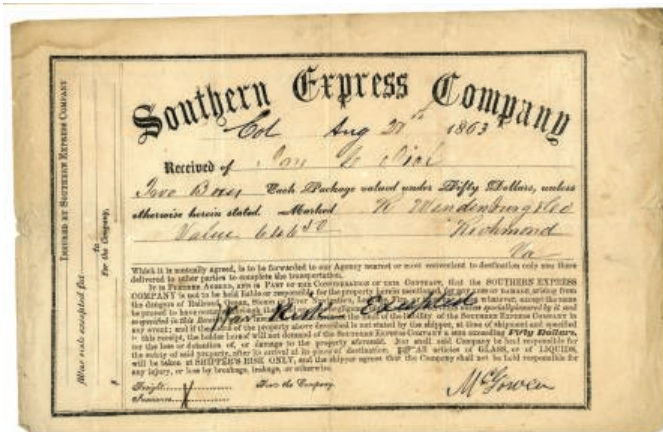 Southern Express Company
Col Aug 1863
Received of
Two Boxes Each Package valued under Fifty Dollars, unless
otherwise herein stated. Marked R Wendenburg & Co
Value 646 50 Richmond
Va
Which it is mutually agreed, is to be forwarded to our Agency nearest or most convenient to destination only and there
delivered to other parties to complete the transportation.
It is Further Agreed, and is Part of the Consideration of this Contract, that the SOUTHERN EXPRESS
COMPANY is not to be held liable or responsible for the property herein mentioned, for any loss or damage arising from
the dangers of Railroad, Ocean, Steam or River Navigation, whatever, except the same
be proved to have
War Risk Excepted
specified in this Receipt the liability of the SOUTHERN EXPRESS COMPANY in
any event; and if the value of the property above described is not stated by the shipper, at time of shipment and specified
in this receipt, the holder hereof will not demand of the SOUTHERN EXPRESS COMPANY a sum exceeding Fifty Dollars,
for the loss or detention of, or damage to the property aforesaid. Nor shall said Company be held responsible for
the safety of said property, after its arrival at its place of destination. All articles of GLASS, or of LIQUIDS,
will be taken at SHIPPER'S RISK ONLY, and the shipper agrees that the Company shall not be held responsible for
any injury, or loss by breakage, leakage, or otherwise.
Freight For the Company,
Insurance
McGowen
Insured by Southern Express Company
For the Company,
War risk excepted for
to
$